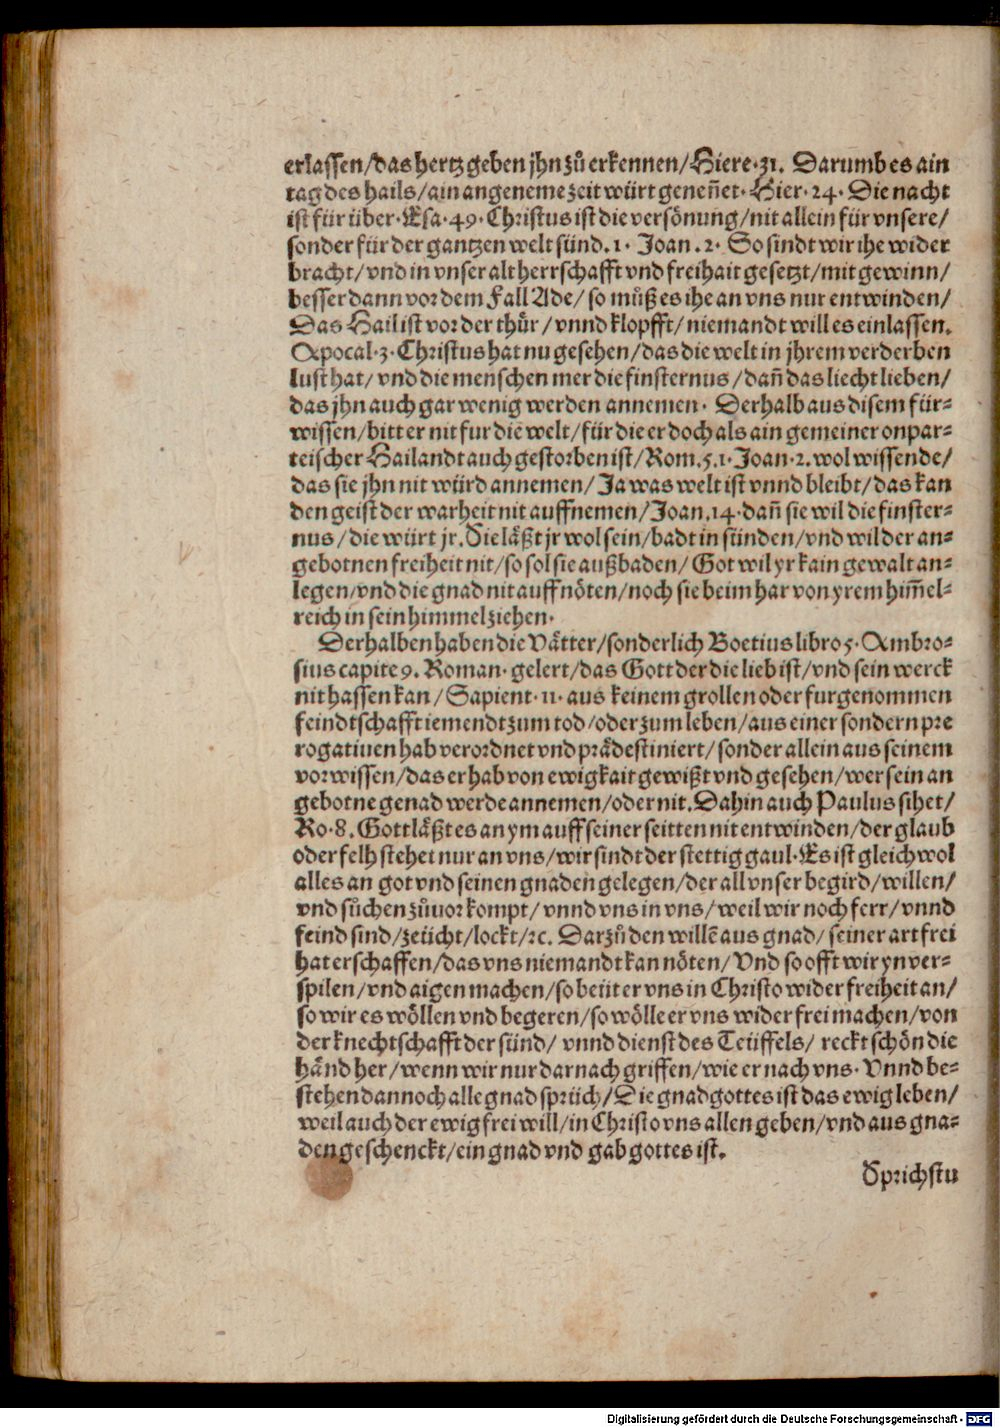 erlassen/das hertz geben jhn zů erkennen/Hiere·31. Darumb es ain
tag des hails/ain angeneme zeit würt geneñet· Hier·24· Die nacht
ist für über·Esa·49·Christus ist die versönung/nit allein für vnsere/
sonder für der gantzen welt sünd.1· Joan.2· So sindt wir ihe wider
bracht/vnd in vnser alt herrschafft vnd freihait gesetzt/mit gewinn/
besser dann vor dem Fall Ade/ so můß es ihe an vns nur entwinden/
Das Hail ist vor der thůr/vnnd klopfft/niemandt will es einlassen.
Apocal·3·Christus hat nu gesehen/das die welt in jhrem verderben
lust hat/ vnd die menschen mer die finsternus/dañ das liecht lieben/
das jhn auch gar wenig werden annemen· Derhalb aus disem für-
wissen/bitt er nit fur die welt/für die er doch als ain gemeiner onpar-
teischer Hailandt auch gestorben ist/Rom.5.1·Joan·2.wol wissende/
das sie jhn nit würd annemen/Ja was welt ist vnnd bleibt/das kan
den geist der warheit nit auffnemen/Joan.14·dañ sie wil die finster-
nus/die würt jr.Die läßt jr wol sein/badt in sünden/vnd wil der an-
gebotnen freiheit nit/so sol sie außbaden/ Got wil yr kain gewalt an-
legen/vnd die gnad nit auff nöten/noch sie beim har von yrem him̃el-
reich in sein himmel ziehen·
Derhalben haben die Vätter/sonderlich Boetius libro 5·Ambro-
sius capite 9. Roman· gelert/das Gott der die lieb ist/vnd sein werck
nit hassen kan/ Sapient·11·aus keinem grollen oder furgenommen
feindtschafft iemendt zum tod/oder zum leben/aus einer sondern pre
rogatiuen hab verordnet vnd prädestiniert/sonder allein aus seinem
vorwissen/das er hab von ewigkait gewißt vnd gesehen/wer sein an
gebotne genad werde annemen/oder nit.Dahin auch Paulus sihet/
Ro·8. Gott läßt es an ym auff seiner seitten nit entwinden/der glaub
oder felh stehet nur an vns/wir sindt der stettig gaul·Es ist gleich wol
alles an got vnd seinen gnaden gelegen/der all vnser begird/willen/
vnd sůchen zůuor kompt/vnnd vns in vns/weil wir noch ferr/vnnd
feind sind/zeücht/lockt/ꝛc. Darzů den willẽ aus gnad/ seiner art frei
hat erschaffen/das vns niemandt kan nöten/Vnd so offt wir yn ver-
spilen/vnd aigen machen/so beüt er vns in Christo wider freiheit an/
so wir es wöllen vnd begeren/so wölle er vns wider frei machen/von
der knechtschafft der sünd/ vnnd dienst des Teüffels/ reckt schön die
händ her/wenn wir nur darnach griffen/wie er nach vns· Vnnd be-
stehen dannoch alle gnad sprüch/Die gnad gottes ist das ewig leben/
weil auch der ewig frei will/in Christo vns allen geben/vnd aus gna-
den geschenckt/ein gnad vnd gab gottes ist.
Sprichstu
Digitalisierung gefördert durch die Deutsche Forschungsgemeinschaft - DFG